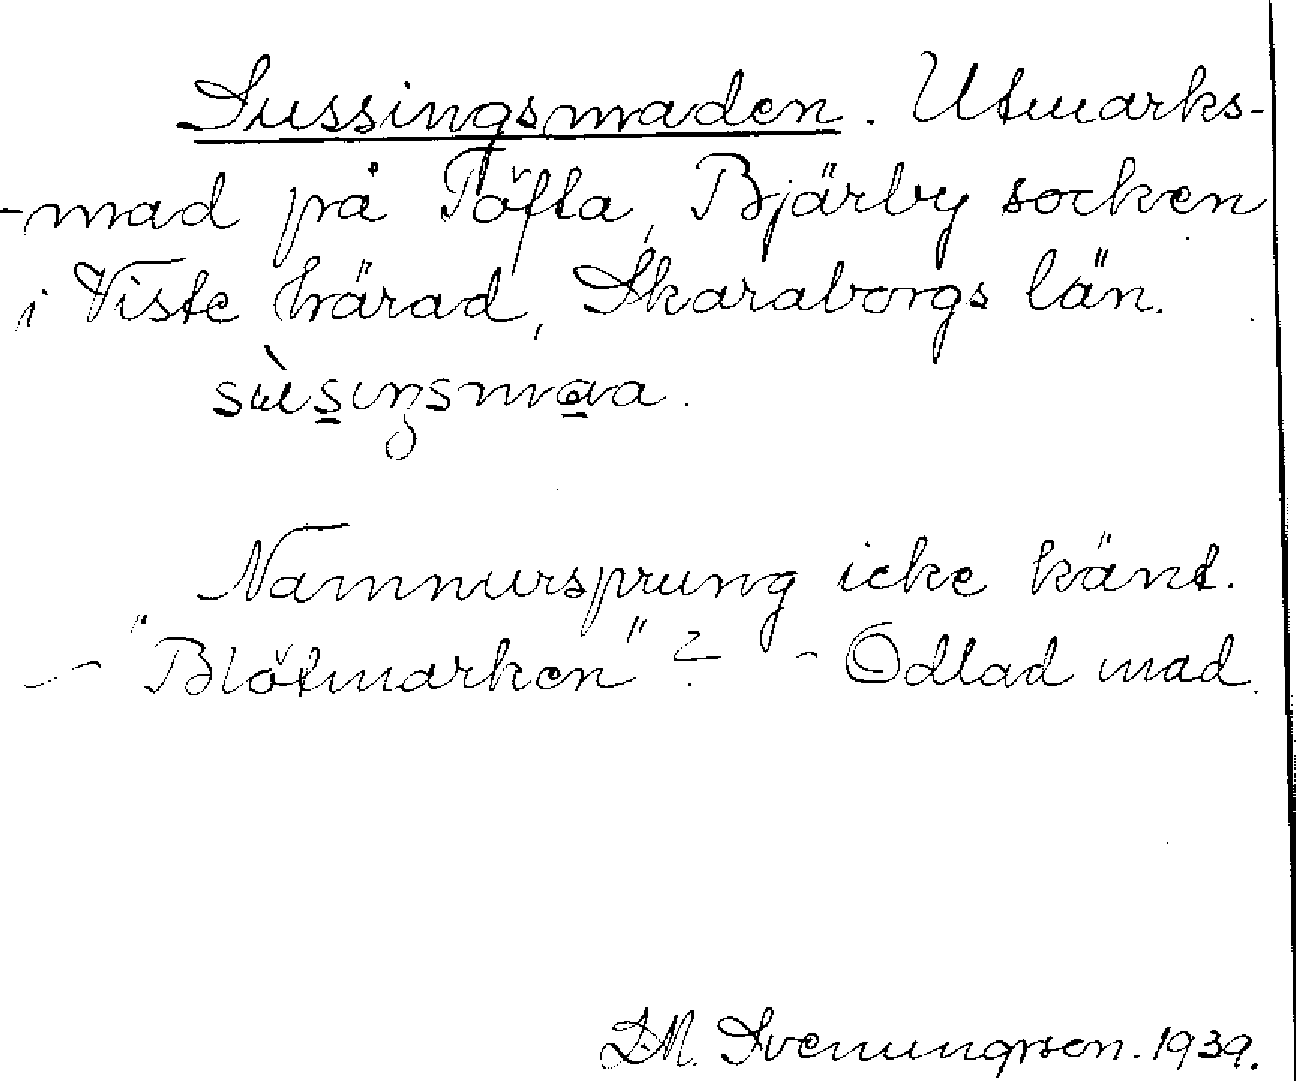 Sussingsmaden. Utmarks-
-mad på Töfta, Bjärby socken
i Viste härad, Skaraborgs län.
sùsıŋsmaa.
Namnursprung icke känt.
- "Blötmarken"? - Odlad mad.
D.M. Svenungsson. 1939.